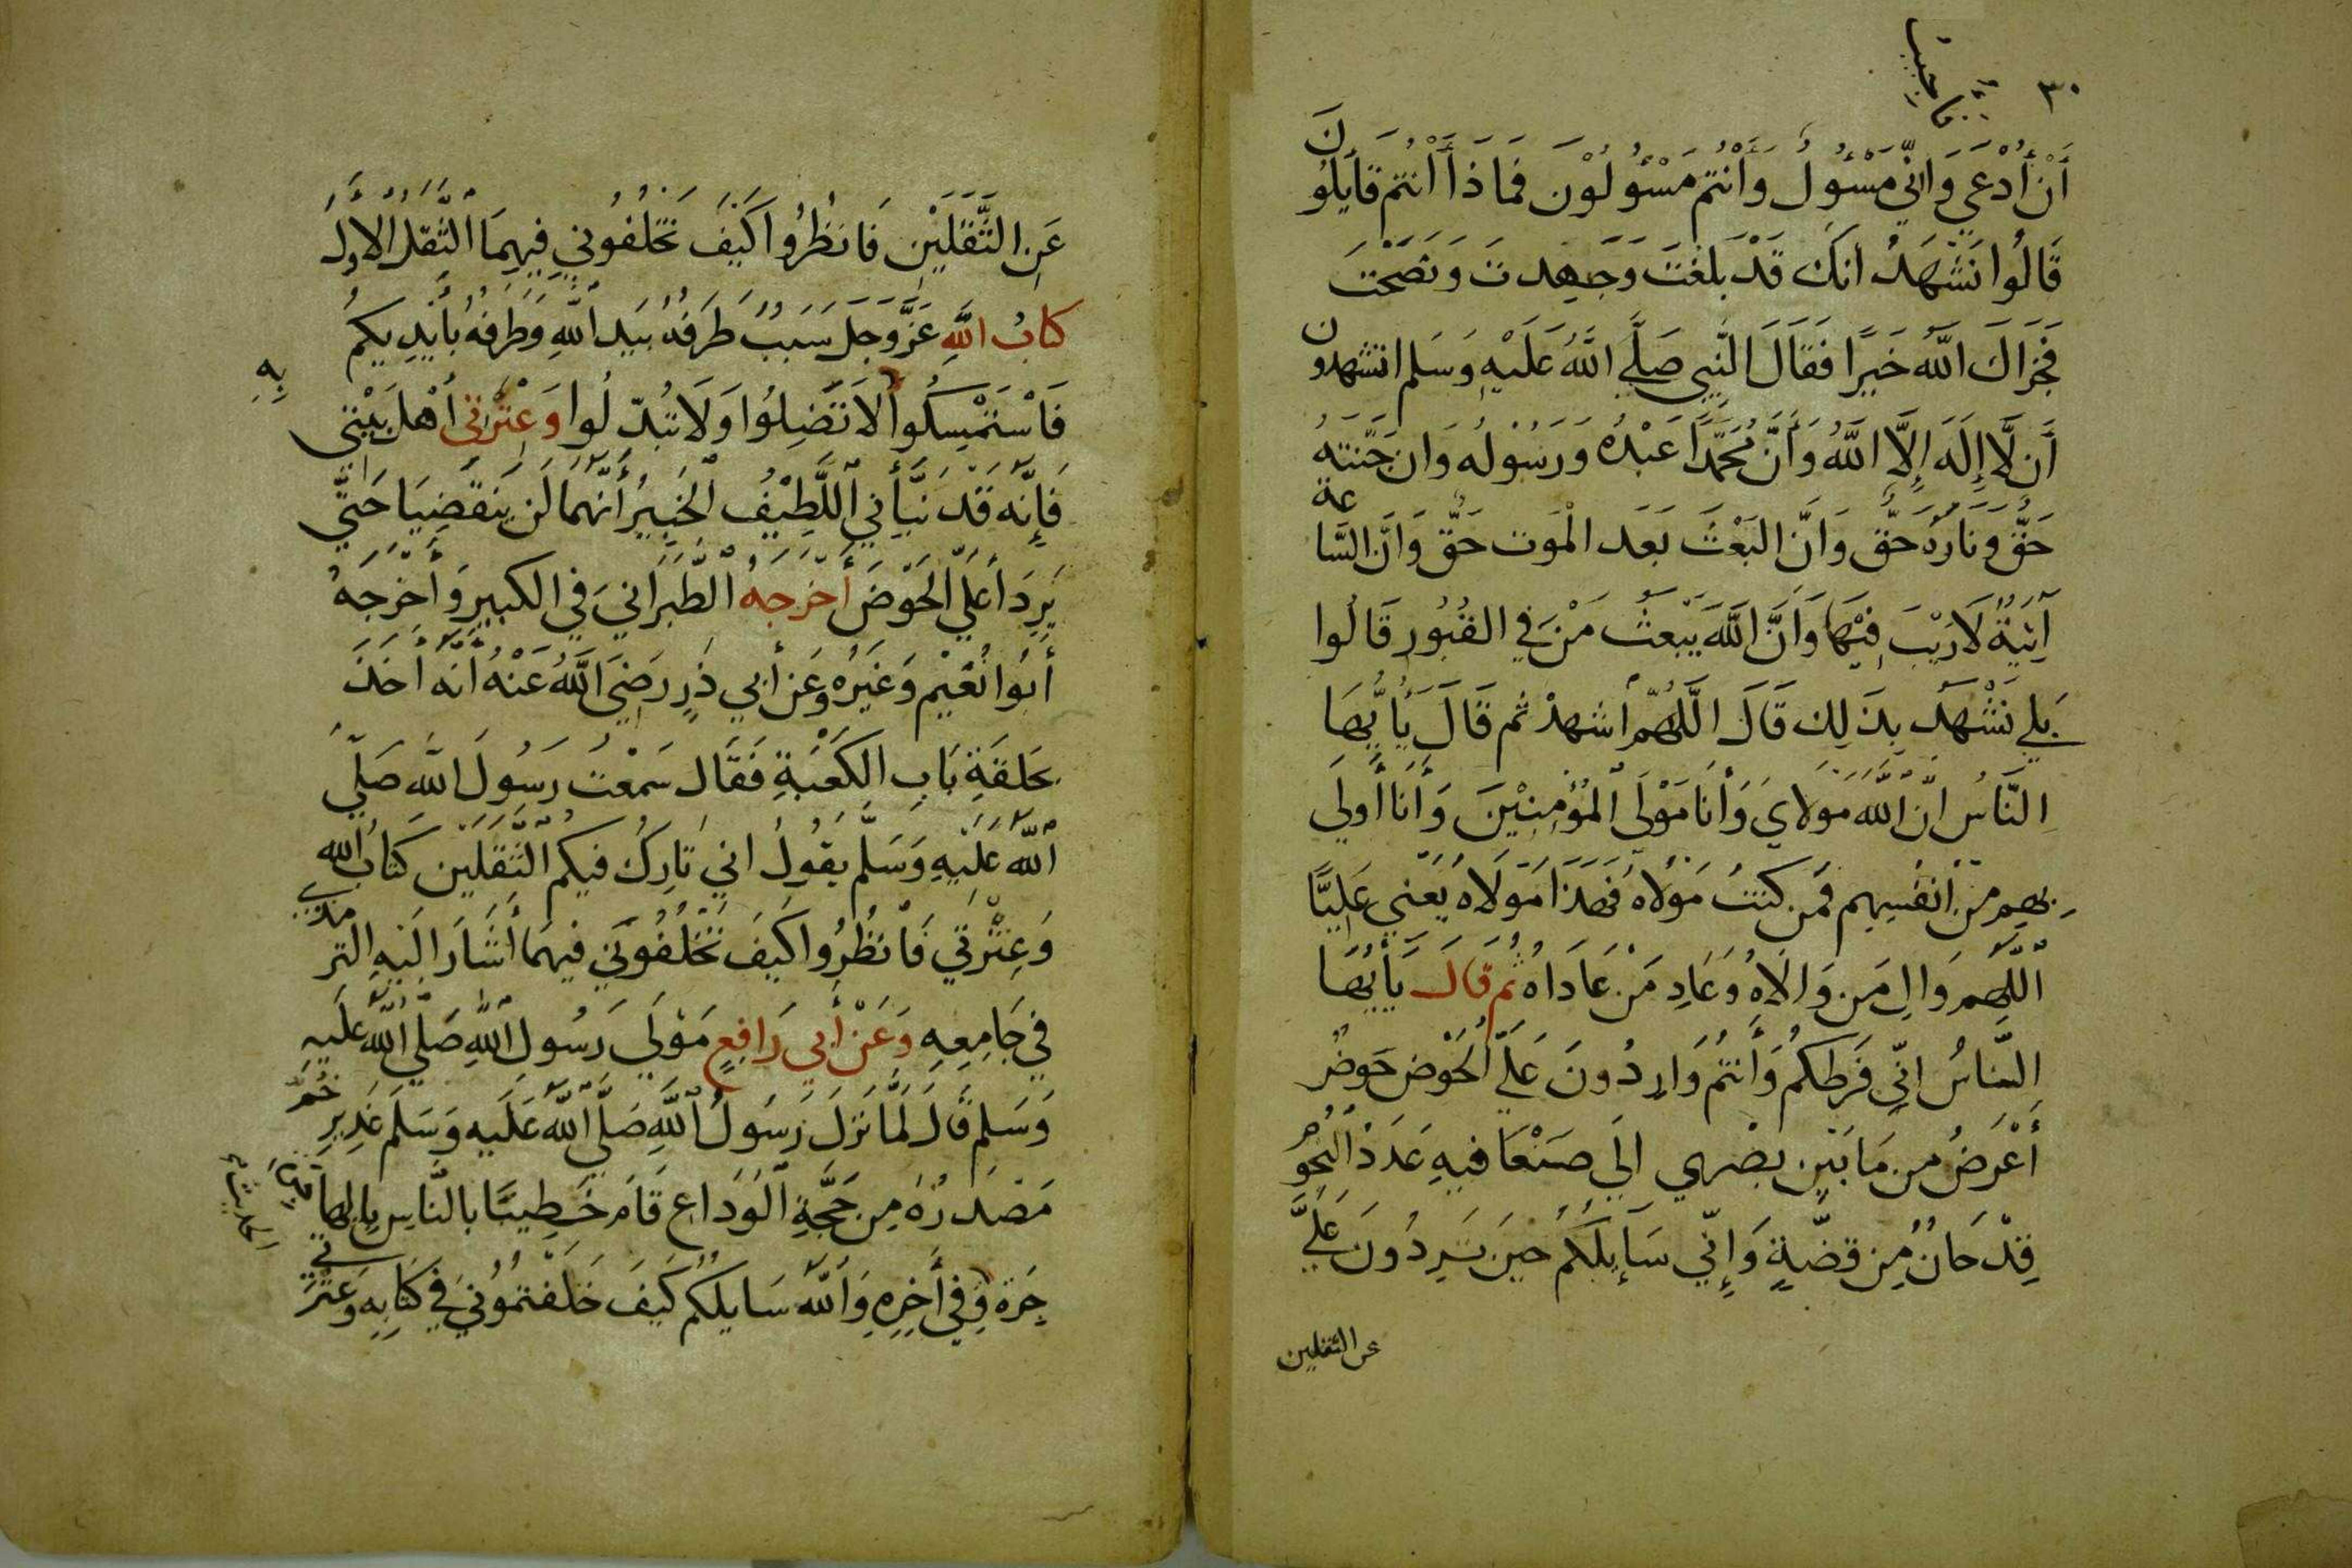 ٣٠
فأجيب
أَنْ أُدْعَي وَانِّي مَسْؤُلٌ وَأَنْتُم مَسْؤُلُوْنَ فَمَا ذَا أَنْتُم قَايَلُونَ
قَالُوا نَشْهَدُ أنَكَ قَدْ بَلَغْتَ وَجَهِدتَ وَنَصَحْتَ
فَجَزَاكَ اللَّهُ خَيرًا فَقَالَ النَّبِي صَلَّي اللَّهُ عَلَيْهِ وَسَلم اتشهدون
أَن لَّا إِلَهَ إِلَّا اللَّهُ وَأَنَّ مُحَمَّدًا عَبْدُهُ وَرَسُوْلُهُ وَان جَنَّتهُ
حَقٌّ وَنَارَهُ حَقٌّ وَانَّ البَعْثَ بَعَد الْمَوت حَقٌّ وَانَّ السَّاعة
آتِيَةٌ لَا رَيْبَ فِيْهَا وَأَنَّ اللَّهَ يَبْعَثُ مَنْ في القُبُورِ قَالُوا
بَلي نَشْهَدُ بِذَلِكَ قَالَ اللَّهُمَّ اشهدْ ثم قَالَ يَأَيُّهَا
النَّاسُ انَّ اللَّهَ مَولَايَ وَأَنَا مَوْلَى الْمُؤْمِنِيْنَ وَأَنَا أَولَي
بِهِم مِنْ أَنفُسِهِم فَمَن كُنتُ مَوْلَاهُ فَهَذَا مَولَاهُ يَعْنِي عَلِيًّا
اللَّهُم وَالِ مَن وَالَاهُ وَعَادِ مَنْ عَادَاهُ ثُم قَالَ يَأَيُّهَا
النَّاسُ انِّي فَرَطكُم وَأَنتُم وَارِدُونَ عَلَيَّ الحَوْضِ حَوضٌ
أَعْرَضُ مِن مَا بَيْن بصْرى الَي صَنْعَا فيهِ عَدَدُ النُّجُومِ
قِدْحَانٌ مِن فِضَّةٍ وَإِنِّي سَآيِلكُمْ حِينَ تَرِدُونَ عَلَيَّ
عن الثقلين
عَنِ الثَّقَلَيْنِ فَانظُرُوا كَيْفَ تَخْلُفُونِي فِيهِمَا الثِّقلُ الأَولُ
كتابُ اللَّهِ عَزَّ وَجَلَّ سَبَبٌ طَرَفهُ بيَدِ اللَّهِ وَطَرفهُ بأَيْدِيكُم
فَاسْتَمْسِكُوا بِهِ لَا تَضِلُوا وَلَا تُبَدِّلُوا وَعِتْرَتِي أَهْلَ بَيْتِي
فَإِنَّه قَدْ نَبَّأَنِي اللَّطِيْفُ الخَبِيرُ أَنَّهُمَا لَن يَنقَضِيَا حَتَّي
يَرِدَا عَلَيَّ الحَوْضَ أَخْرَجَهُ الطَّبَرَانيَ في الكبير وَأَخْرَجَهُ
أَبُوا نُعَيْم وَغَيْرُه وَعَن أَبِي ذَرٍ رَضِيَ اللَّهُ عَنْهُ أَنَّه أَخَذَ
بحَلقَةِ بَابِ الكَعْبَةِ فَقَال سَمْعْتُ رَسُولَ اللَّه صَلَّي
اللَّه عَلَيْهِ وَسَلَّم يَقُولُ اني تَارِكٌ فيكُم الثَّقَلَين كتَابَ الله
وَعِتْرَتي فَانظُرُوا كَيفَ تَخْلُفُونَي فيهِمَا أَشَارَ الَيهِ الترمذي
في جَامِعِهِ وَعَنْ أَبي رَافِعٍ مَوْلَي رَسُولِ اللَّهِ صَلَّي اللَّهُ عَلَيهِ
وَسَلم قَالَ لَمَّا نَزَلَ رَسُولُ اللَّهِ صَلَّي اللَّهُ عَلَيه وَسَلَّم غَدِيرِ خُمّ
مَصْدَرُهُ مِن حَجَّةِ الْوَدَاعِ قَامَ خَطِيبًا بالنَّاسِ بالهَاجَرَة
وَفِي أَخِرِهِ وَاللَّه سَايلكُم كَيْفَ خَلَفتمُونيَ في كتَابِهِ وَعتْرَتي
الحديث